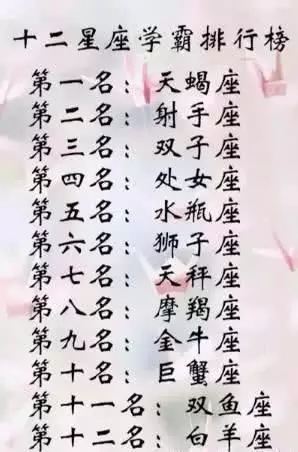 十二星座学霸排行榜
第一名：天蝎座
第二名：射手座
第三名：双子座
第四名：处女座
第五名：水瓶座
第六名：狮子座
第七名：天秤座
第八名：摩羯座
第九名：金牛座
第十名：巨蟹座
第十一名：双鱼座
第十二名：白羊座